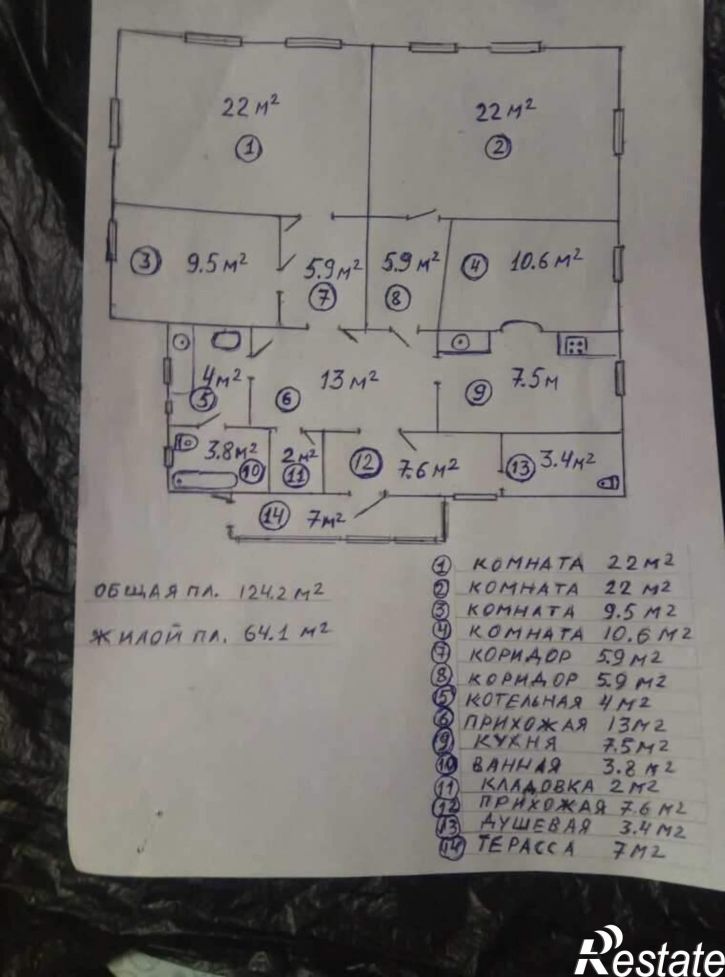 22 м² 22 м²
① ②
③ 9.5 м² 5.9 м² 5.9 м² ④ 10.6 м²
⑦ ⑧
4 м² 13 м² 7.5 м
⑤ ⑥ ⑨
3.8 м² 2 м² ⑫ 7.6 м² ⑬ 3.4 м²
⑩ ⑪
⑭ 7 м²
ОБЩАЯ ПЛ. 124.2 м²
ЖИЛОЙ ПЛ. 64.1 м²
① КОМНАТА 22 м²
② КОМНАТА 22 м²
③ КОМНАТА 9.5 м²
④ КОМНАТА 10.6 м²
⑦ КОРИДОР 5.9 м²
⑧ КОРИДОР 5.9 м²
⑤ КОТЕЛЬНАЯ 4 м²
⑥ ПРИХОЖАЯ 13 м²
⑨ КУХНЯ 7.5 м²
⑩ ВАННАЯ 3.8 м²
⑪ КЛАДОВКА 2 м²
⑫ ПРИХОЖАЯ 7.6 м²
⑬ ДУШЕВАЯ 3.4 м²
⑭ ТЕРАССА 7 м²
Restate